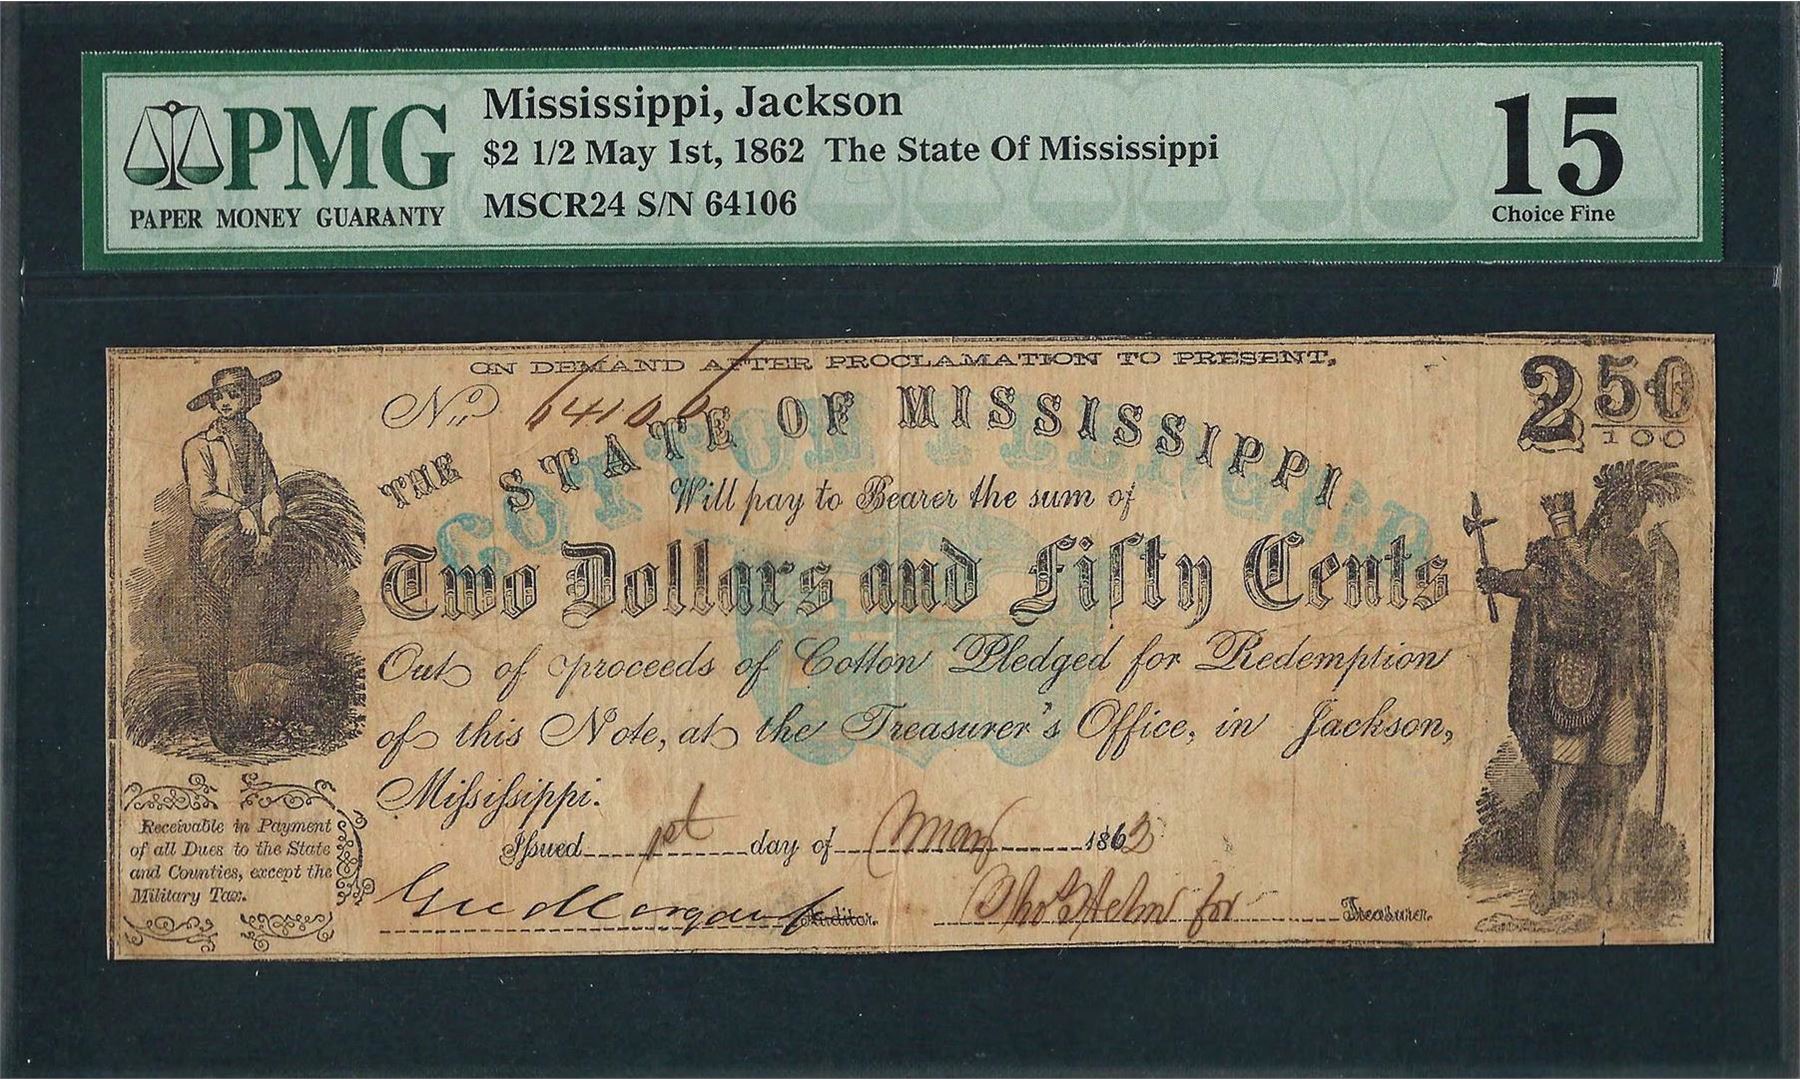 PMG
PAPER MONEY GUARANTY
Mississippi, Jackson
$2 1/2 May 1st, 1862 The State Of Mississippi
MSCR24 S/N 64106
15
Choice Fine
ON DEMAND AFTER PROCLAMATION TO PRESENT,
No 64106
2 50/100
THE STATE OF MISSISSIPPI
COTTON PLEDGED
Will pay to Bearer the sum of
Two Dollars and Fifty Cents
Out of proceeds of Cotton Pledged for Redemption
of this Note, at the Treasurer's Office, in Jackson,
Mississippi.
Issued 1st day of May 1862
Receivable in Payment
of all Dues to the State
and Counties, except the
Military Tax.
Auditor.
for Treasurer.